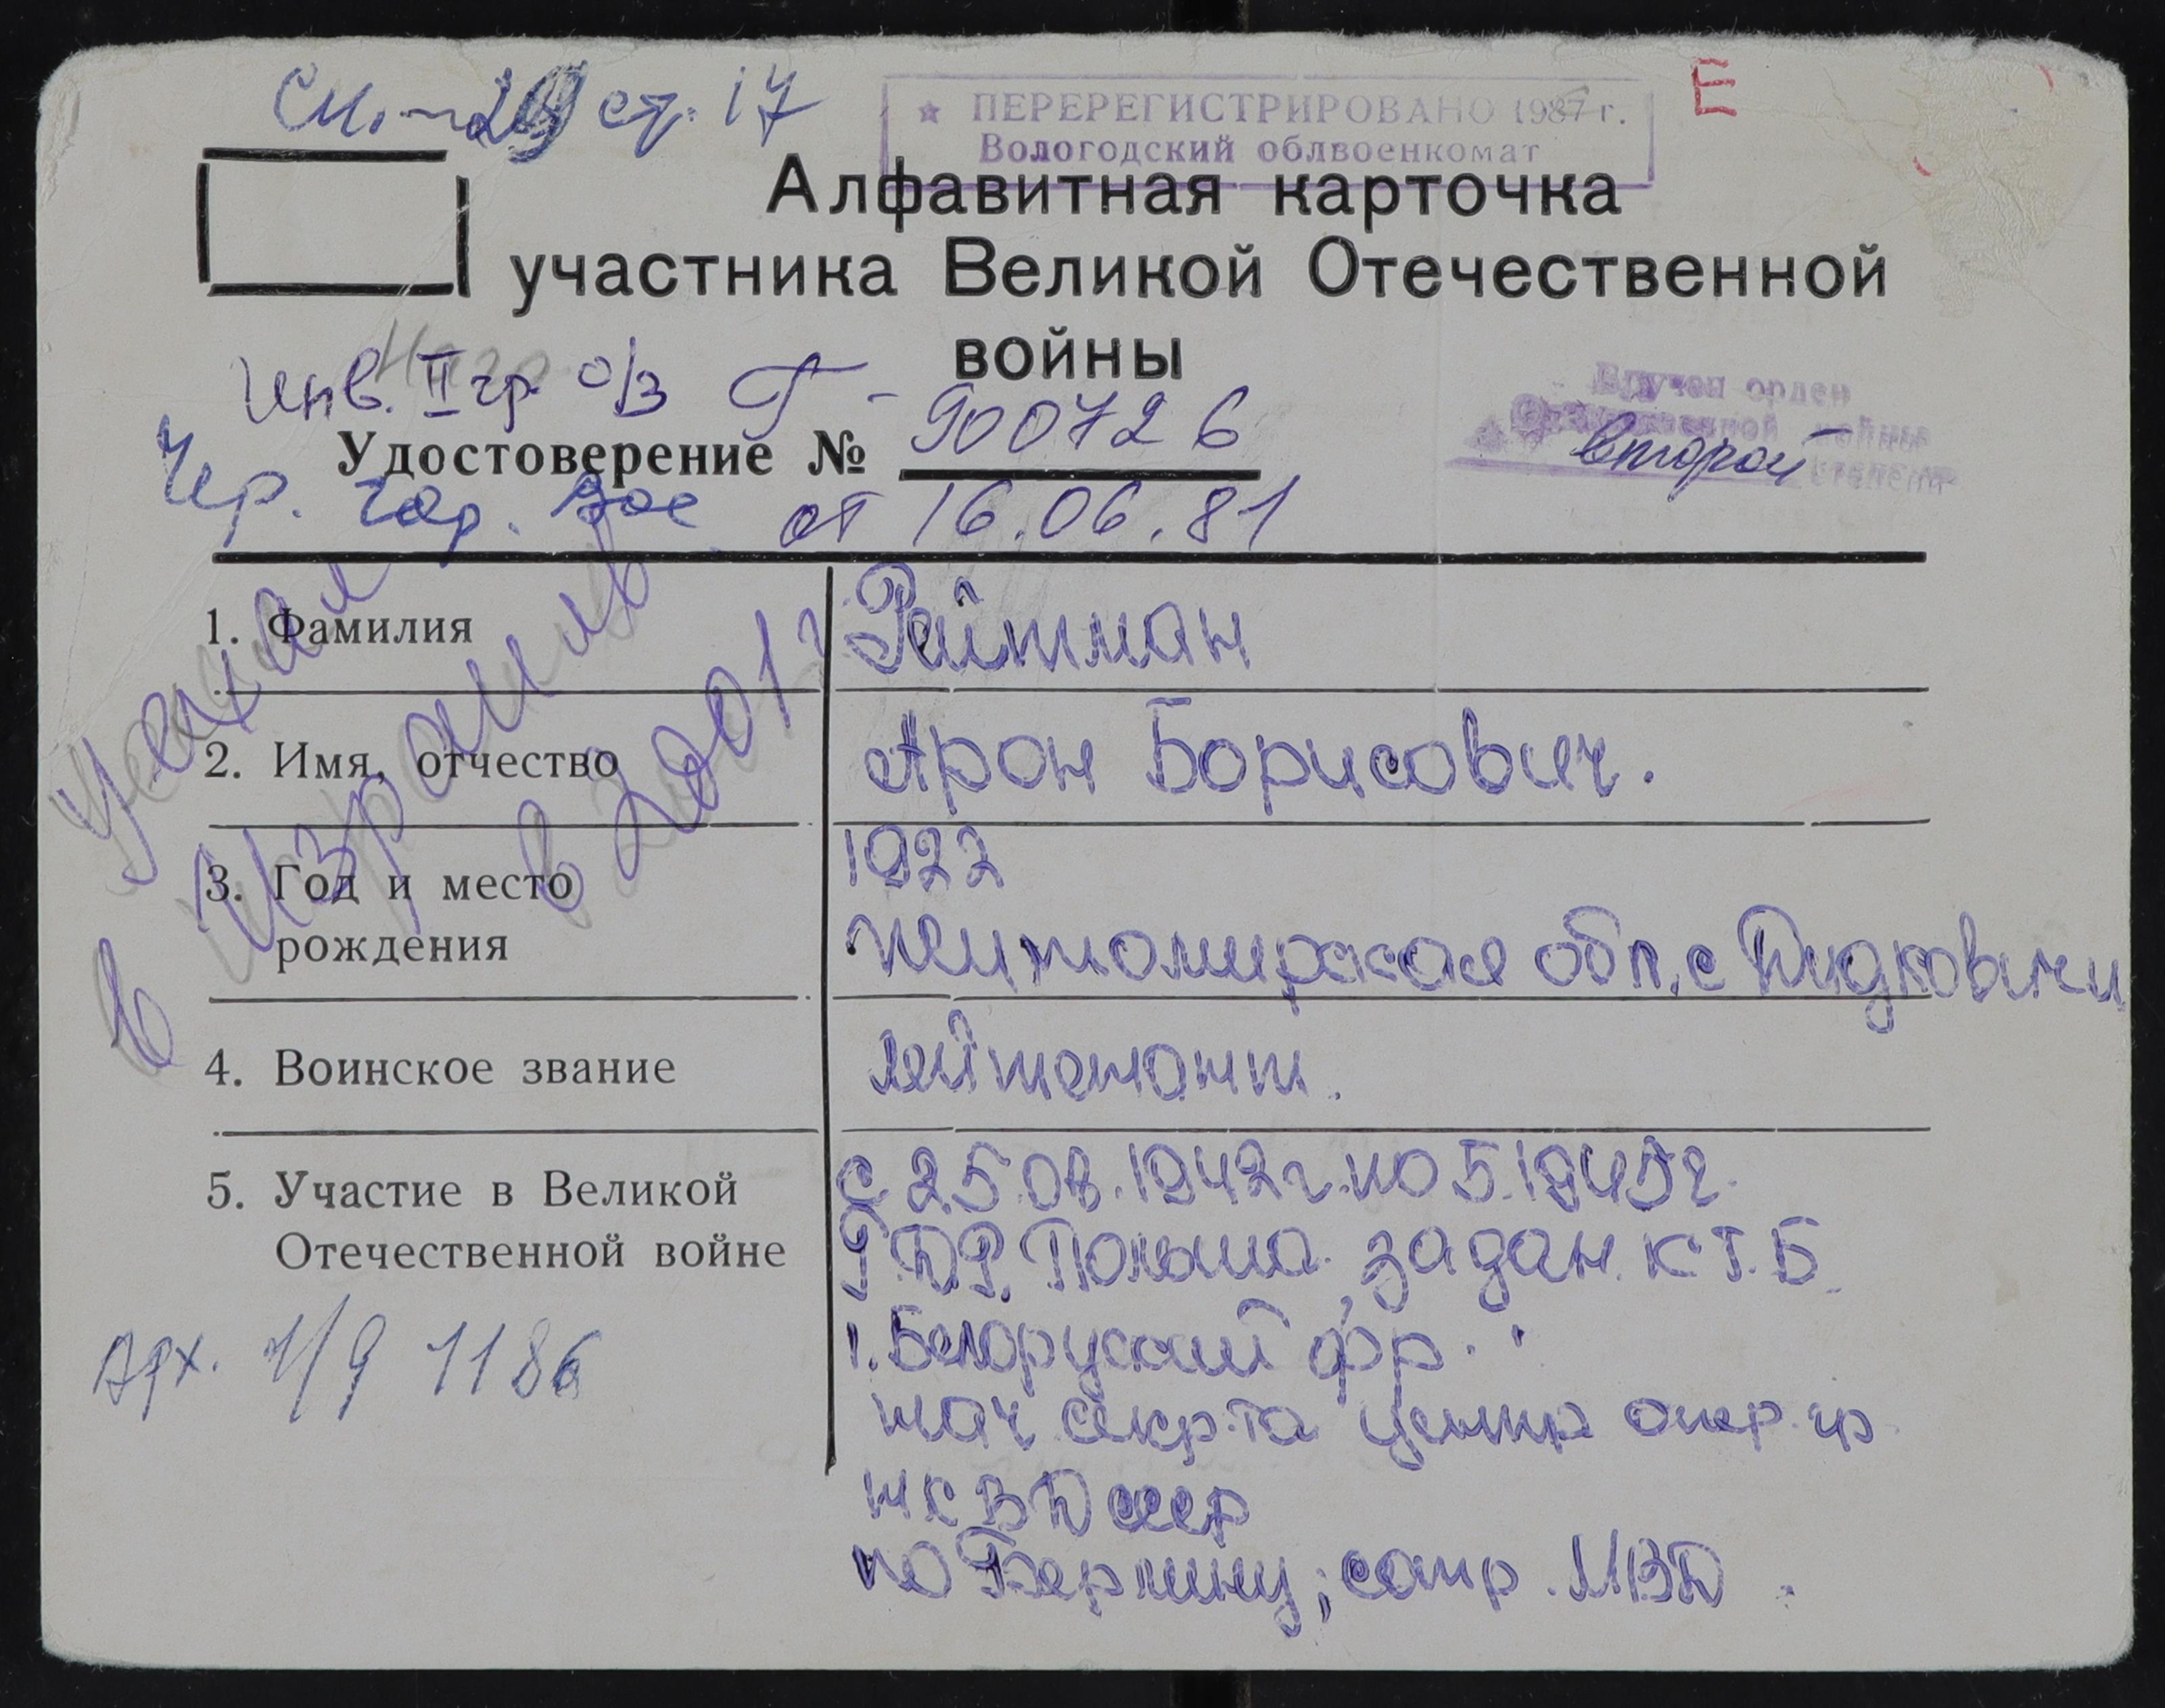 См. 29 ст. 17
Е
★ ПЕРЕРЕГИСТРИРОВАНО 1987 г.
Вологодский облвоенкомат
Алфавитная карточка
участника Великой Отечественной
войны
Инв. II гр. о/з Г - 900726
Удостоверение №
Вручен орден
Отечественной войны
второй степени
от 16.06.81
уехал
в Израиль
в 2001 г
1. Фамилия Рейтман
2. Имя, отчество Арон Борисович.
3. Год и место рождения 1922
Житомирская обл, с Дидковичи
4. Воинское звание лейтенант.
5. Участие в Великой Отечественной войне
с 25.08.1942г. по 5.1945г.
ГДР, Польша, задан. КГ.Б
1. Белоруский фр.
нач. секр-та центр опер. гр.
НКВД ссср
по Берлину; сотр. МВД.
Арх. 1186